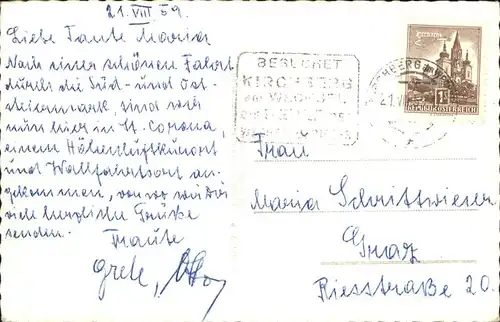 21. VIII 59.
Liebe Tante Maria!
Nach einer schönen Fahrt
durch die Süd- und Ost-
steiermark, sind wir
nun hier in St. Corona,
einem Höhenluftkurort
und Wallfahrtsort an-
gekommen, von wo wir Dir
viele herzliche Grüße
senden.
Traute
Grete, Otto
BESUCHET
KIRCHBERG
AM WECHSEL
KIRCHBERG AM
21.VI
MARIAZELL
REPUBLIK ÖSTERREICH
Frau
Maria Schrittwieser
Graz
Riesstraße 20.